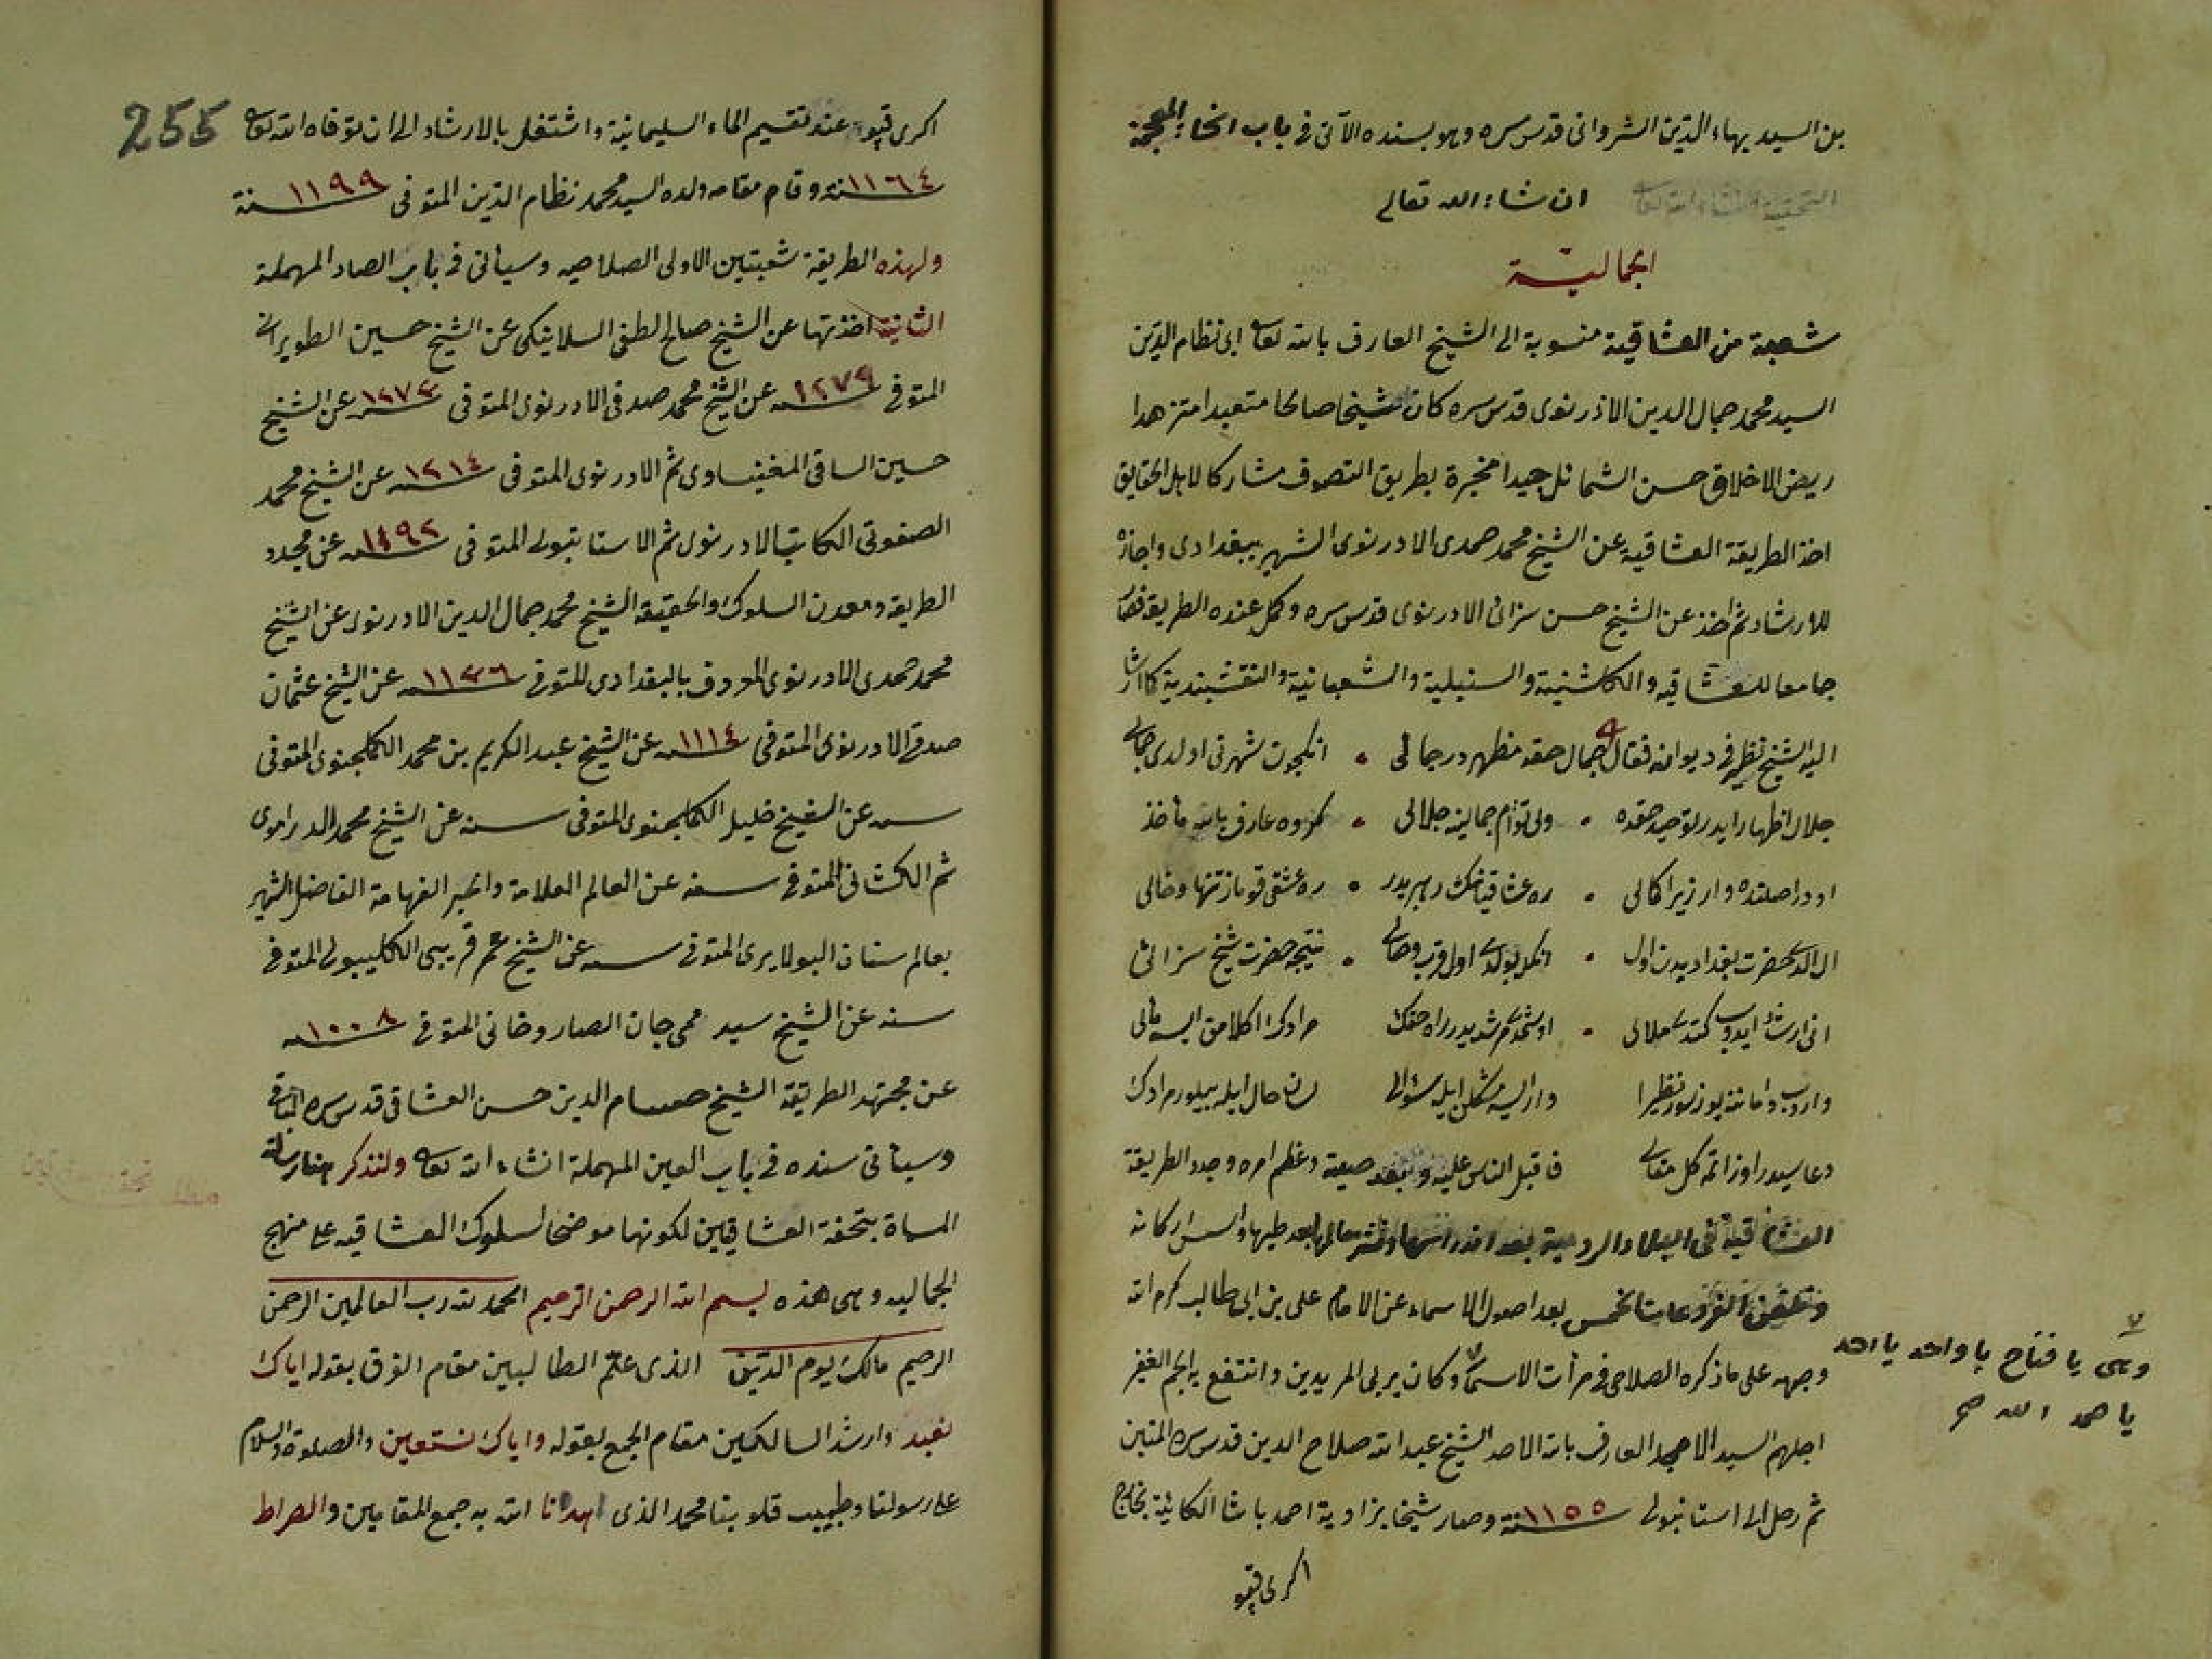 بن السيد بهاء الدين الشروانى قدس سره وهو بسنده الآتى فى باب الخاء المعجمة
ان شاء الله تعالى
الجمالية
شعبة من العشاقية منسوبة الى الشيخ العارف بالله تعالى ابى نظام الدين
السيد محمد جمال الدين الادرنوى قدس سره كان شيخا صالحا متعبدا متزهدا
الاخلاق حسن الشمائل جيدا بطريق التصوف مشاركا لاهل الحقايق
اخذ الطريقة العشاقية عن الشيخ محمد حمدى الادرنوى الشهير ببغدادى واجازه
للارشاد ثم اخذ عن الشيخ حسن سزائى الادرنوى قدس سره وكمل عنده الطريقة فصار
جامعا للعشاقيه والكلشنية والسنبلية والشعبانية والنقشبندية كما اشار
اليه الشيخ نظير فى ديوانه فقال جمال حقه مظهردر جمالى • انكچون شهرتى اولدى جمالى
جلال اظهار ايدر توحيد حقده • ولى توأم جمالينه جلالى • كروه عارف بالله مأخذ
اودر اصلنده وار زيرا كمالى • ره عشاقينك رهبريدر • ره عشقى قومازتنها وخالى
ال الدى حضرت بغداديدن اول • انكله بولدى اول قرب وصالى • نتيجه حضرت شيخ سزائى
انى ارشاد ايدوب كتدى ملالى • مرشديدر راه حقك مرادك اكلامق ايسه مالى
واروب داماننه يوز سور نظيرا وار ايسه مشكلن ايله سؤالى لسان حال ايله بيلور مرادك
دعاسيدر اوزاتمه كل مقالى فاقبل الناس عليه وبعد صيته وعظم امره وجدد الطريقة
العشاقية فى البلاد الرومية بعد اندراسها بعد طيها
بعد اصول الاسماء عن الامام على بن ابى طالب كرم الله
وجهه على ما ذكره الصلاحى فى مرأت الاسماء وكان يربى المريدين وانتفع به الجم الغفير
اجلهم السيد الامجد العارف بالله الاحد الشيخ عبد الله صلاح الدين قدس سره المتين
ثم رحل الى استانبول سنة ١١٥٥ وصار شيخا بزاوية احمد باشا الكائنة بخارج
اكرى قپو
٧
وهى يا فتاح يا واحد يا احد
يا صمد الله صح
255
اكرى قپو عند تقسيم الماء السليمانية واشتغل بالارشاد الى ان توفاه الله تعالى
سنة ١١٦٤ وقام مقامه ولده السيد محمد نظام الدين المتوفى سنة ١١٩٩
ولهذه الطريقة شعبتين الاولى الصلاحيه وسيأتى فى باب الصاد المهملة
الثانية اخذتها عن الشيخ صالح لطفى السلانيكى عن الشيخ حسين الطويرانى
المتوفى سنه ١٢٧٩ عن الشيخ محمد صدقى الادرنوى المتوفى سنه ١٢٧٣ عن الشيخ
حسين الساقى المغنيساوى ثم الادرنوى المتوفى سنه ١٢١٤ عن الشيخ محمد
الصفوتى الكاتب الادرنوى ثم الاستانبولى المتوفى سنه عن مجدد
الطريقة ومعدن السلوك والحقيقة الشيخ محمد جمال الدين الادرنوى عن الشيخ
محمد حمدى الادرنوى المعروف بالبغدادى المتوفى سنه ١١٣٦ عن الشيخ عثمان
صدقى الادرنوى المتوفى سنه ١١١٤ عن الشيخ عبد الكريم بن محمد الكملجنوى المتوفى
سنه عن الشيخ خليل الكملجنوى المتوفى سنه عن الشيخ محمد الدراموى
ثم الكشانى المتوفى سنه عن العالم العلامة والحبر الفهامة الفاضل الشهير
بعالم سنان البولايرى المتوفى سنه عن الشيخ عمر قريبى الكليبولى المتوفى
سنه عن الشيخ سيد ممى جان الصاروخانى المتوفى سنه ١٠٠٨
عن مجتهد الطريقة الشيخ حسام الدين حسن العشاقى قدس سره الباقى
وسيأتى سنده فى باب العين المهملة انشاء الله تعالى ولنذكر هنا رسالة
المسماة بتحفة العشاقيين لكونها موضحا لسلوك العشاقيه على منهج
الجماليه وهى هذه بسم الله الرحمن الرحيم الحمد لله رب العالمين الرحمن
الرحيم مالك يوم الدين الذى علّم الطالبين مقام الفرق بقوله اياك
نعبد وارشد السالكين مقام الجمع بقوله واياك نستعين والصلوة والسلام
على رسولنا وطبيب قلوبنا محمد الذى اهدانا الله به جمع المقامين والصراط